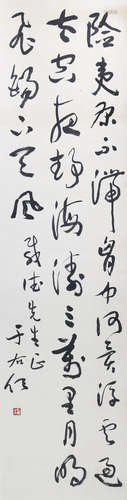 險夷原不滯胸中何異浮雲過
太空夜靜海濤三萬里月明
飛錫下天風
先生正
于右任